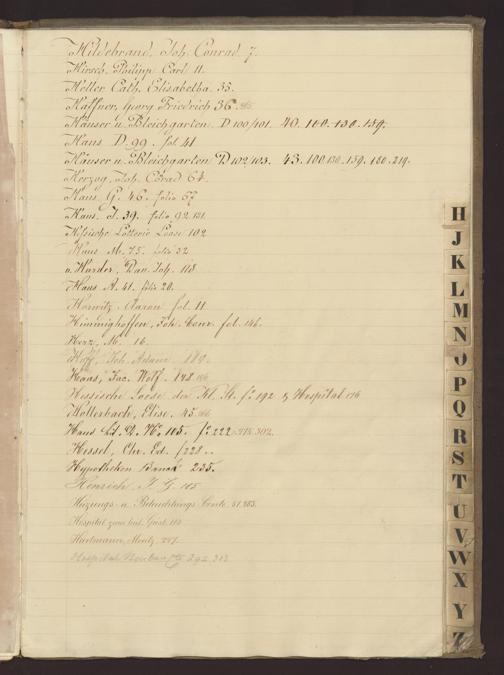 Hildebrand, Joh. Conrad. 7.
Hirsch, Philipp Carl 11.
Holler Cath. Elisabetha. 35.
Haffner, Georg Friedrich 36.
Häuser u. Bleichgarten. D 100/101. 40. 100. 130. 159.
Haus D. 99. fol 41
Häuser u. Bleichgarten D 102/103. 43. 100. 130. 159. 180. 219.
Herzog, Joh. Conrad 64.
Haus G. 46. folio 67
Haus, J. 39. folio 92. 131.
Hessische Lotterie Loose 102
Haus M. 75. folio 32
v. Harder, Dan. Joh. 118
Haus A. 41. folio 20.
Horwitz, Aaron fol. 11
Himminghoffen, Joh. Conr. fol. 146.
Herz, M. 16.
Hoff, Joh. Adam 180.
Haas, Jac. Wolf. 148
Hessische Loose des St. f. 192 & Hospital 176
Hollerbach, Elise. 45
Haus Lit. D. No. 105. f. 222. 302.
Hessel, Chr. Ed. f 228.
Hypotheken 235.
Heinrich, J. G. 105
Heizungs- u. Beleuchtungs Conto. 51. 283.
Hospital zum heil. Geist 110
Hartmann, Moritz. 297.
Hospital 292. 313
H
J
K
L
M
N
O
P
Q
R
S
T
U
V
W
X
Y
Z